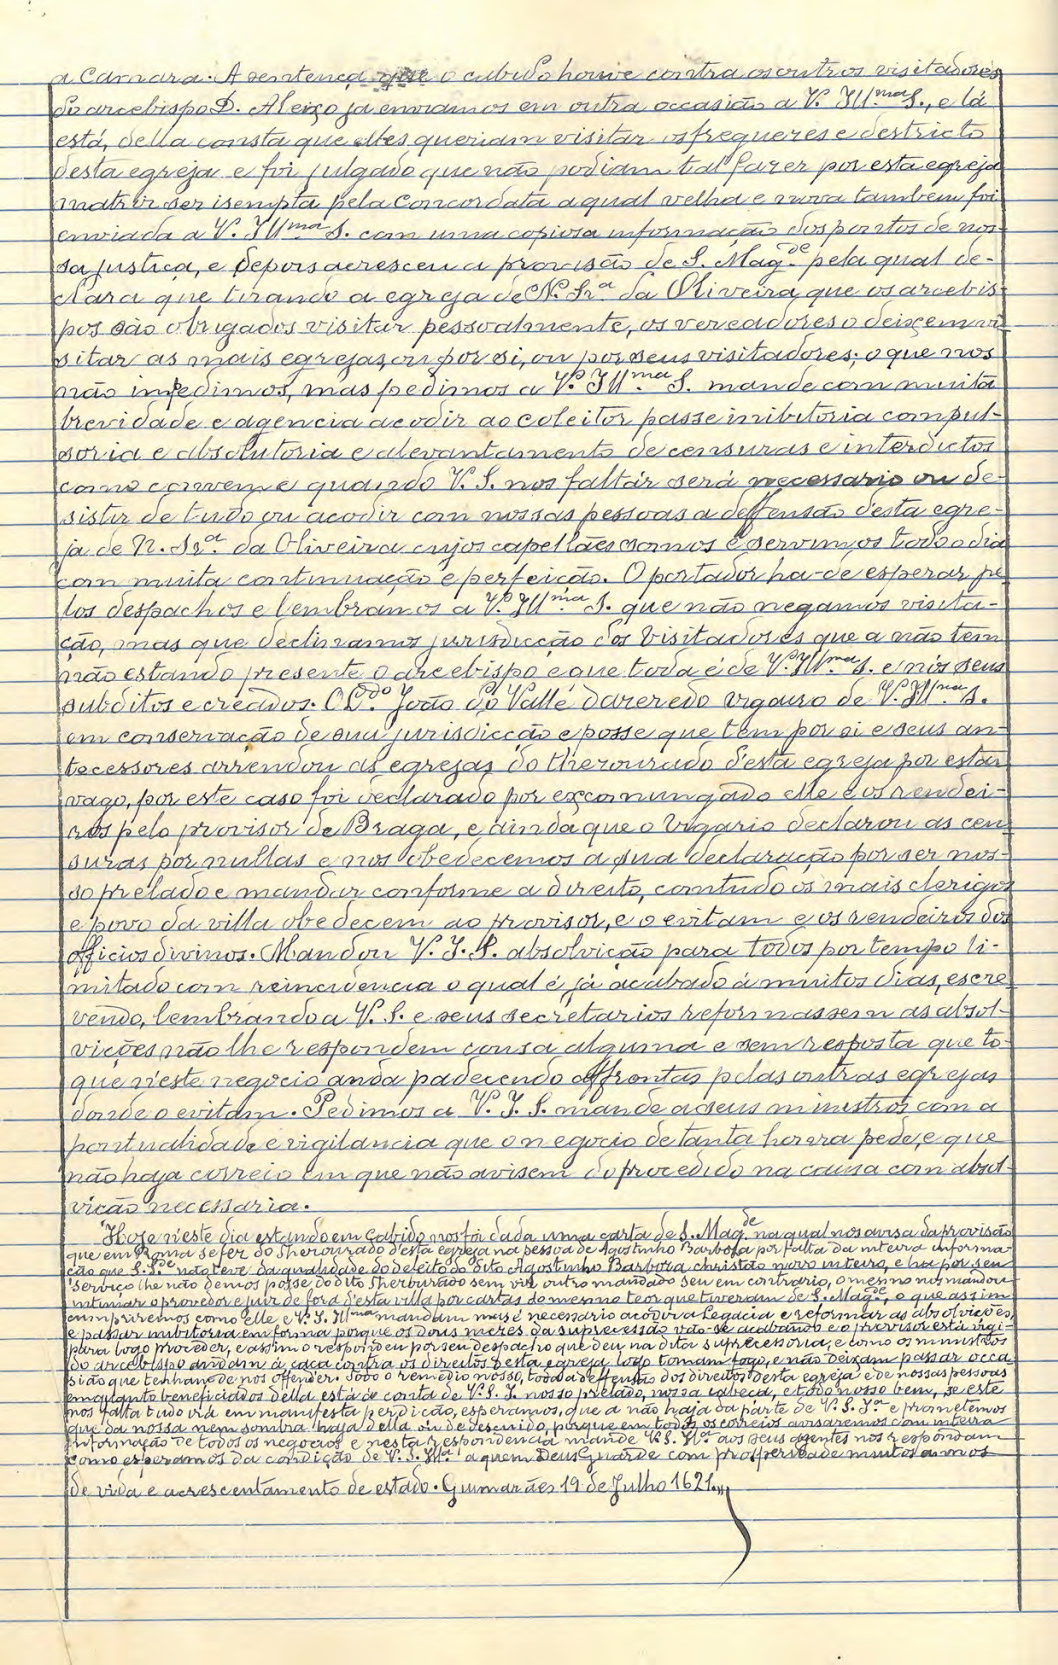 a Camara. A sentença que o cabido houve contra os outros visitadores
do arcebispo D. Aleixo ja enviamos em outra occasião a V. Ill.ma S., e lá
está, della consta que elles queriam visitar os freguezes e destricto
desta egreja e foi julgado que não podiam tal fazer por esta egreja
matriz ser isempta pela Concordata a qual velha e nova tambem foi
enviada a V. Ill.ma S. com uma copiosa informação dos pontos de nos-
sa justiça, e depois acresceu a provisão de S. Mag.de pela qual de-
clara que tirando a egreja de N. Sr.a da Oliveira que os arcebis-
pos são obrigados visitar pessoalmente, os vereadores o deixem vi-
sitar as mais egrejas, ou por si, ou por seus visitadores; o que nos
não impedimos, mas pedimos a V. Ill.ma S. mande com muita
brevidade e agencia acodir ao coleitor passe inibitoria compul-
soria e absolutoria e alevantamento de censuras e interdictos
como convem e quando V. S. nos faltár será necessario ou de-
sistir de tudo ou acodir com nossas pessoas a deffensão desta egre-
ja de N. Sr.a da Oliveira cujos capellães somos e servimos todo o dia
com muita continuação e perfeição. O portador ha-de esperar pe-
los despachos e lembramos a V. Ill.ma S. que não negamos visita-
ção, mas que declinamos jurisdicção dos Visitadores que a não tem
não estando presente o arcebispo e que toda é de V. Ill.ma S. e nós seus
subditos e creados. O D.do João do Valle d'azeredo vigario de V. Ill.ma S.
em conservação de sua jurisdicção e posse que tem por si e seus an-
tecessores arrendou as egrejas do thesourado d'esta egreja por estar
vago, por este caso foi declarado por excomungado elle e os rendei-
ros pelo provisor de Braga, e ainda que o Vigario declarou as cen-
suras por nullas e nos obedecemos a sua declaração por ser nos-
so prelado e mandar conforme a direito, comtudo os mais clerigos
e povo da villa obedecem ao provisor, e o evitam e os rendeiros dos
officios divinos. Mandou V. I. S. absolvição para todos por tempo li-
mitado com reincidencia o qual é já acabado á muitos dias, escre
vendo, lembrando a V. S. e seus secretarios reformassem as absol-
vições não lhe respondem cousa alguma e sem resposta que to-
que n'este negocio anda padecendo affrontas pelas outras egrejas
donde o evitam. Pedimos a V. I. S. mande a seus ministros com a
pontualidade e vigilancia que o negocio de tanta honra pede, e que
não haja correio em que não avisem do procedido na causa com absol-
vicão necessaria.
Hoje n'este dia estando em Cabido nos foi dada uma carta de S. Mag.de na qual nos avisa da provisão
que em Roma se fez do thesourado d'esta egreja na pessoa de Agostinho Barbosa por falta da inteira informa-
ção que S. S.de não teve da qualidade do defeito do dito Agostinho Barbosa christão novo inteiro, e ha por seu
serviço lhe não demos posse do dito thesourado sem vir outro mandado seu em contrario, o mesmo nos mandou
intimar o provedor e juiz de fora d'esta villa por cartas do mesmo teor que tiveram de S. Mag.de, o que assim
cumpriremos como elle e V. I. Ill.ma mandam mas é necessario acodir a Legacia e reformar as absolvições,
e passar inibitoria em forma porque os dous mezes da supercessão vão-se acabando e o provisor está vigi-
para logo proceder, e assim o respondeu por seu despacho que deu na dita supercessoria, e como os ministros
do arcebispo andam á caça contra os direitos desta egreja logo tomam fogo, e não deixam passar occa
sião que tenham de nos offender. Todo o remedio nosso, toda deffensão dos direitos desta egreja e de nossas pessoas
emquanto beneficiados della está á conta de V. S. I. nosso prelado, nossa cabeça, e todo nosso bem, se este
nos falta tudo irá em manifesta perdição, esperamos, que a não haja da parte de V. S. I.a e promettemos
que da nossa nem sombra haja della ou de descuido, porque em todos os correios avisaremos com inteira
informação de todos os negocios e nesta respondencia mande V. S. Ill.a aos seus agentes nos respondam
como esperamos da condição de V. S. Ill.a a quem Deus Guarde com prosperidade muitos annos
de vida e acrescentamento de estado. Guimarães 19 de Julho 1621.